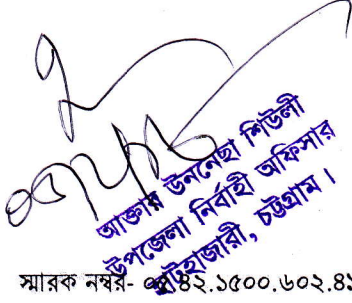 আক্তার উননেছা শিউলী
উপজেলা নির্বাহী অফিসার
হাটহাজারী, চট্টগ্রাম।
স্মারক নম্বর- ০৫.৪২.১৫০০.৬০২.৪১